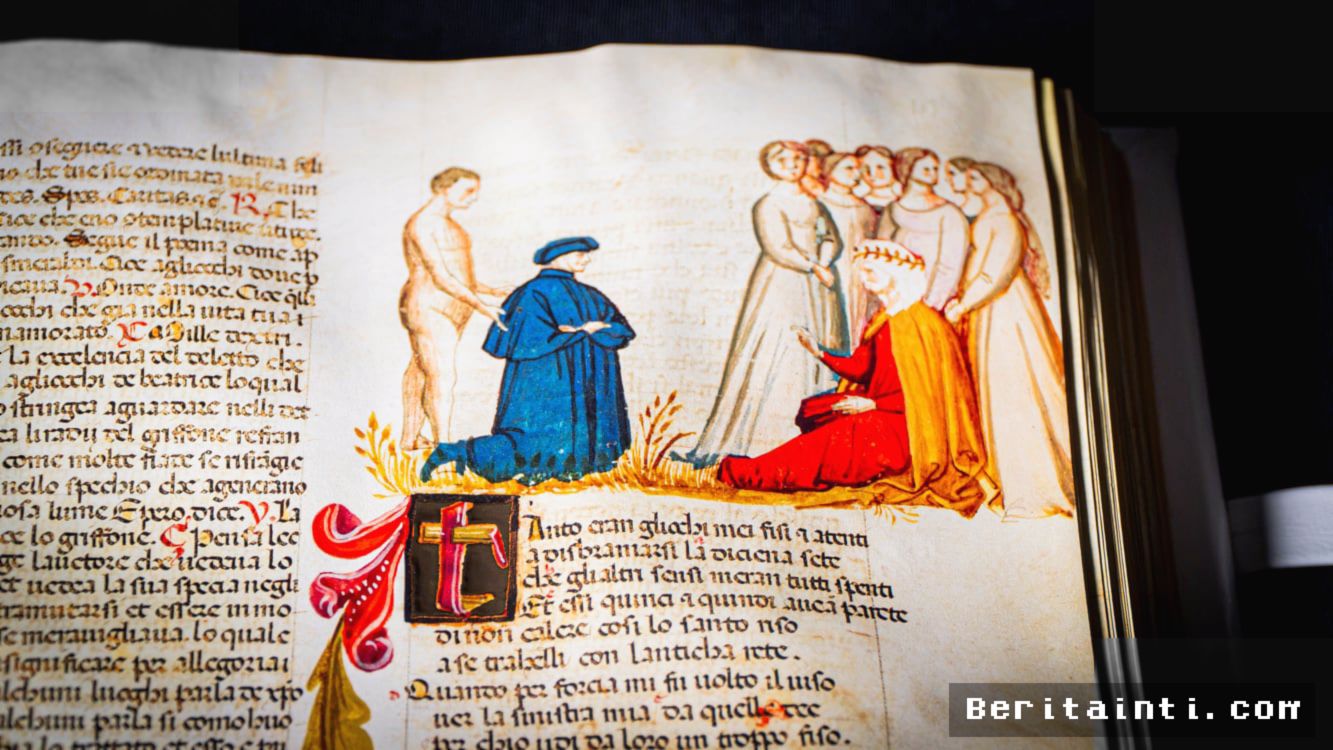 o seguere a vedere lultima
che tue sie ordinata vale nun
Spes. Caritas R. Che
che eno
Segue il poema come ap
smeraldi. Cice agliocchi doue p
V. Onde amore. Cice
occhi che gia nella uita tua i
namorato. Mille
la excelencia del deletto che
agliocchi de beatrice loqual
stringea aguardare nelli
liradij del griffone refian
come molte fiate se
nello spechio che
lume dice. V. La
ce lo griffone. Pensa lec
ge lauctore che uedeua lo
et uedea la sua specia negli
tramutarsi et essere inmo
se merauigliaua. lo quale
significare per allegoria i
alchuni luoghi parla de xpo
alchuni parla si como huo
trattato et esso e
Tanto eran gliochi mei fisi a atenti
a disbramarsi la diciena sete
che glialtri sensi meran tutti spenti
Et essi quinci a quindi auea parete
di non calere cosi lo santo riso
a se trahelli con lanticha rete.
Quando per forcia mi fu uolto il uiso
uer la sinistra mia da quelle dee
per chio udi da loro un troppo fiso.
Beritainti.com